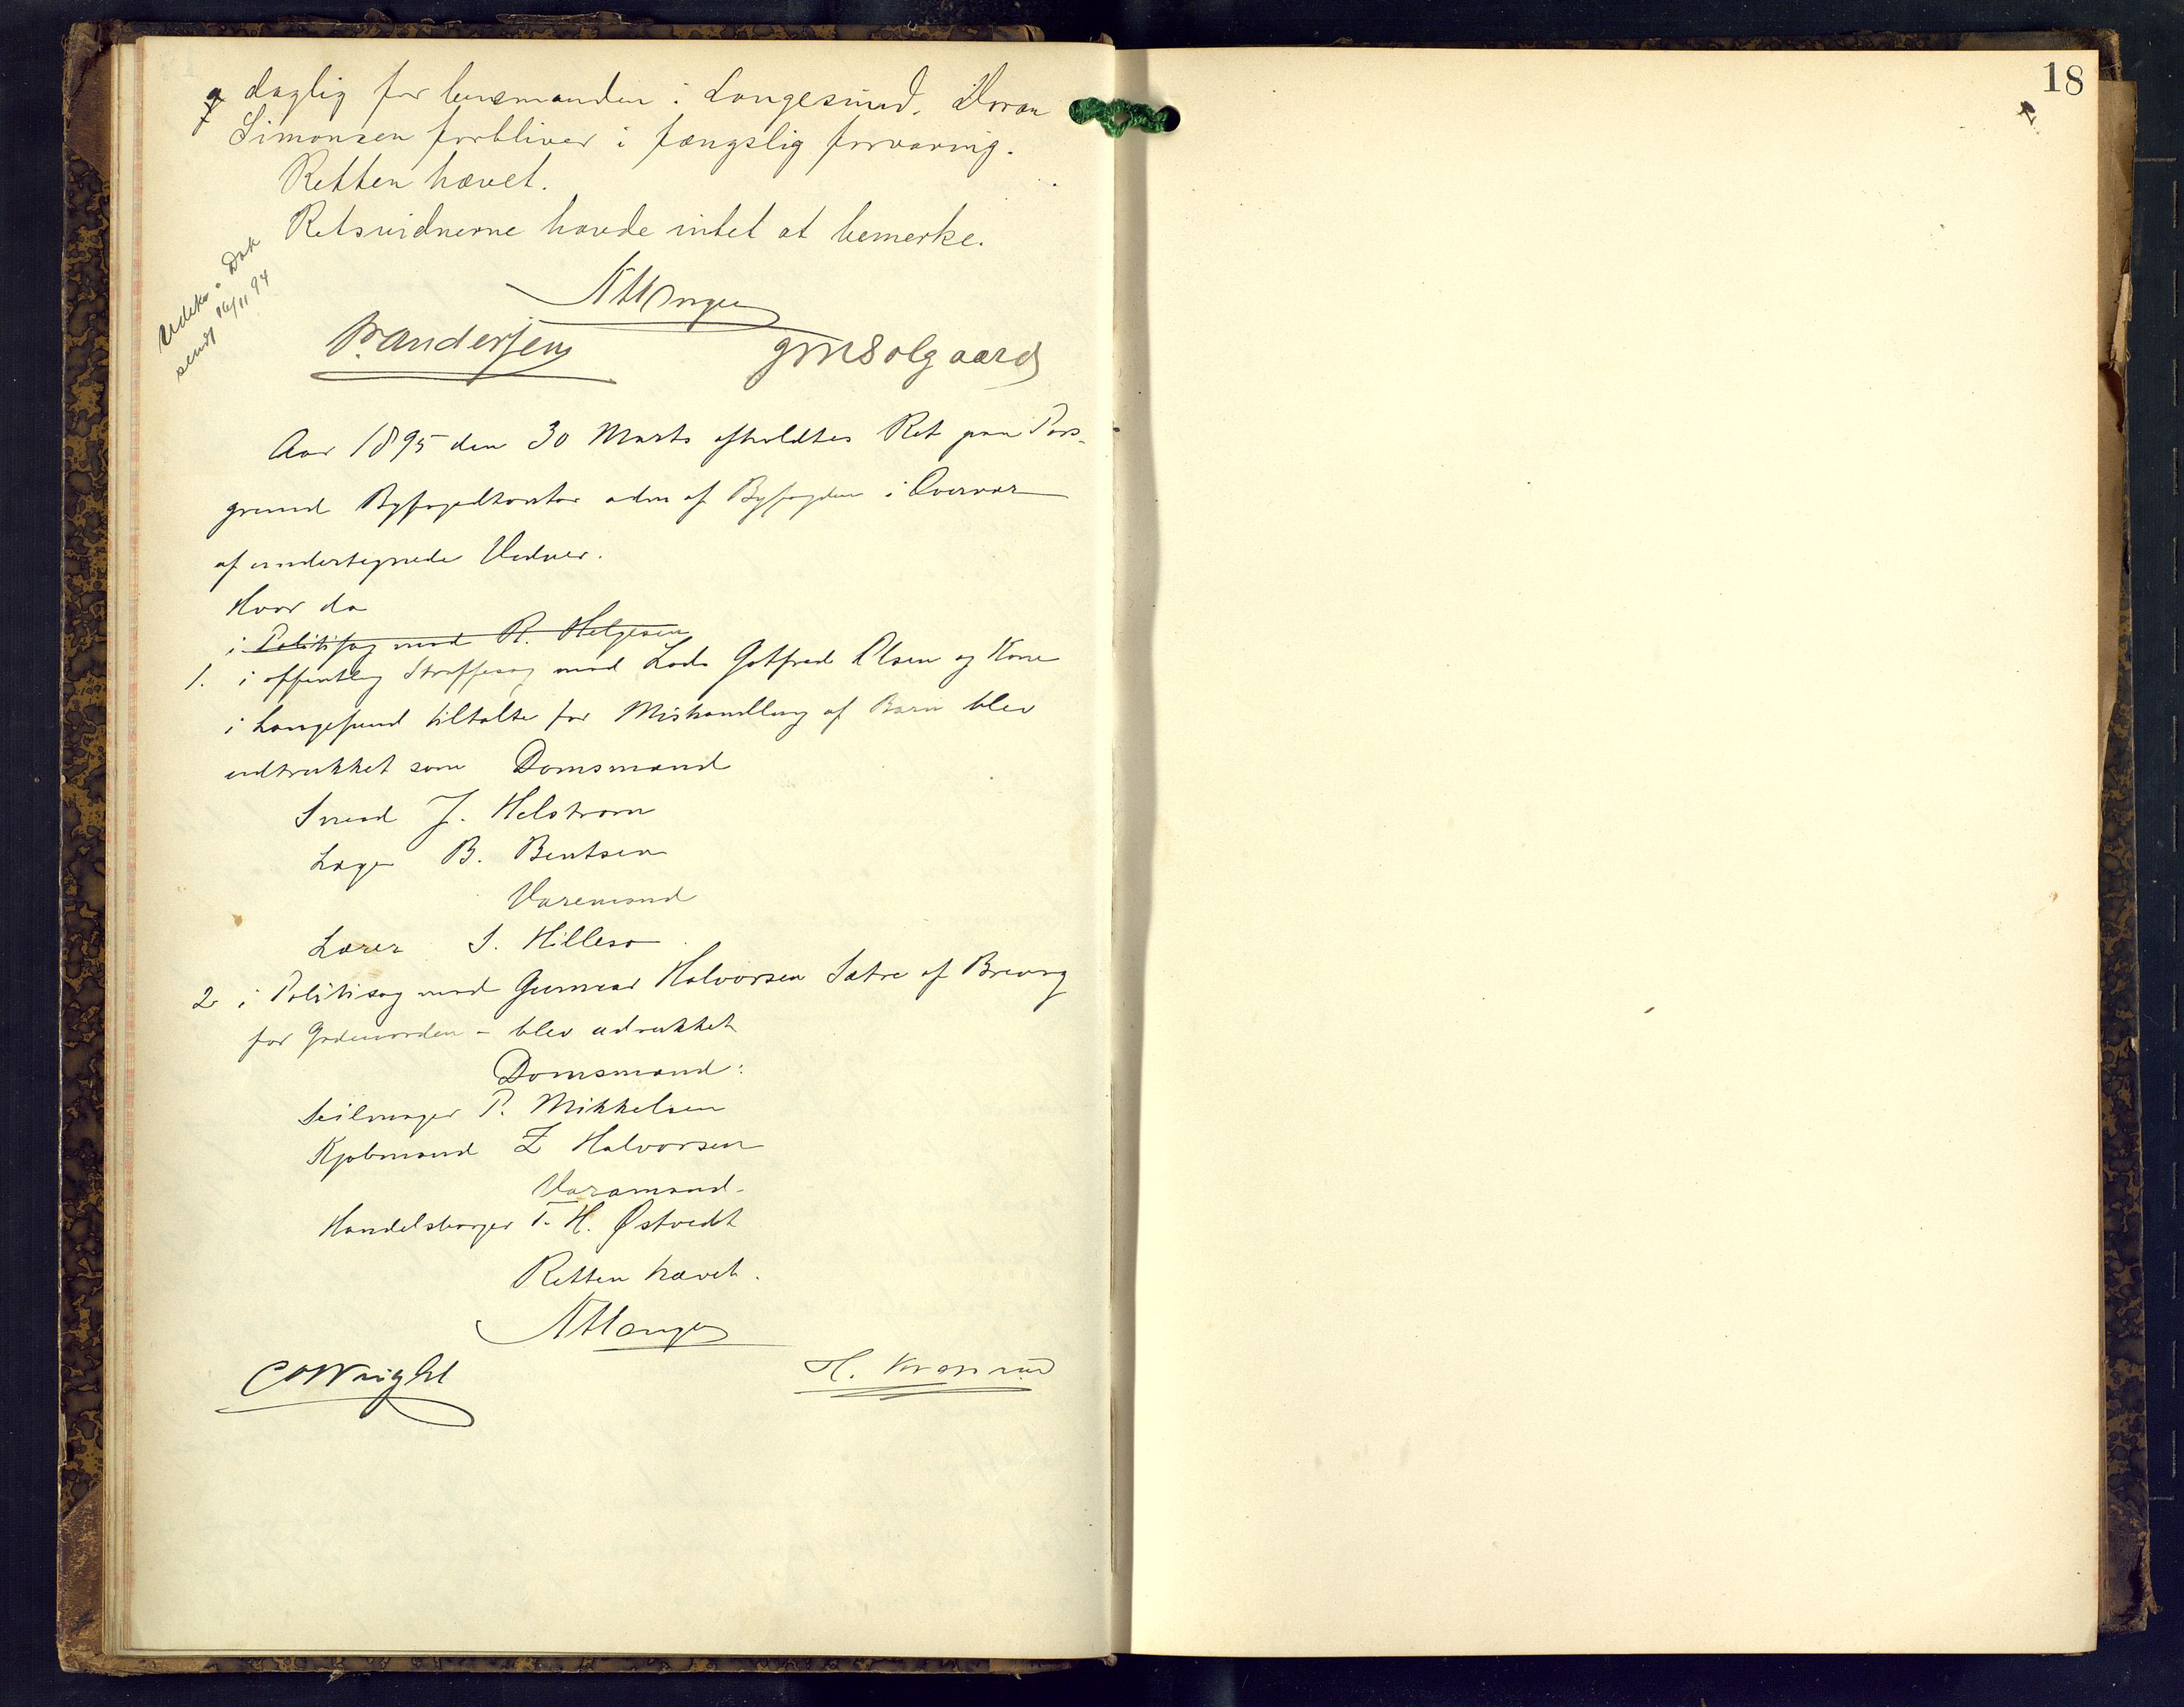 18
daglig for lensmanden i Langesund. Horan
Simonsen forbliver i fængslig forvaring.
Retten hævet.
Retsvidnerne havde intet at bemerke.
Udskr. i Dok
sendt 16/11 94
Andersen
Solgaard
Aar 1895 den 30 Marts afholdtes Ret paa Pors-
grund Byfogedkontor adm af Byfogden i Overvær
af undertegnede Vidner.
Hvor da
i Politisag mod R. Helgesen
1. i offentlig Straffesag mod Lods Gotfred Olsen og Kone
i Langesund tiltalte for Mishandling af Barn blev
udtrukket som Domsmænd
Smed J. Helstrøm
Læge B. Bentsen
Varemand
Lærer S. Hillesø
2 i Politisag mod Gunnar Halvorsen Sætre af Brevig
for – blev udtrukket
Domsmænd:
Seilmager P. Mikkelsen
Kjøbmand Z Halvorsen
Varamand.
Handelsborger T. H. Østvedt
Retten hævet.
C Wright